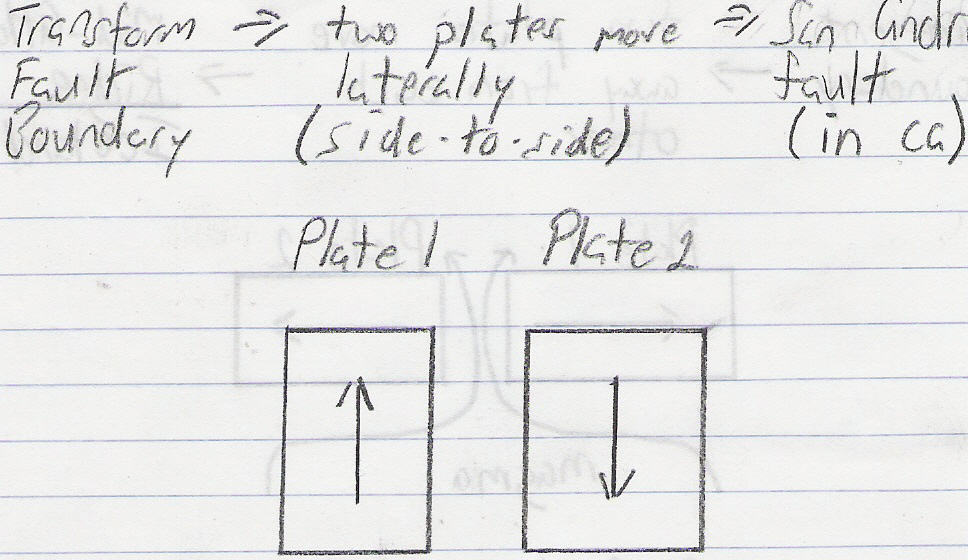 Transform => two plates move => San Andr
Fault laterally fault
Boundary (side-to-side) (in ca)
Plate 1 Plate 2